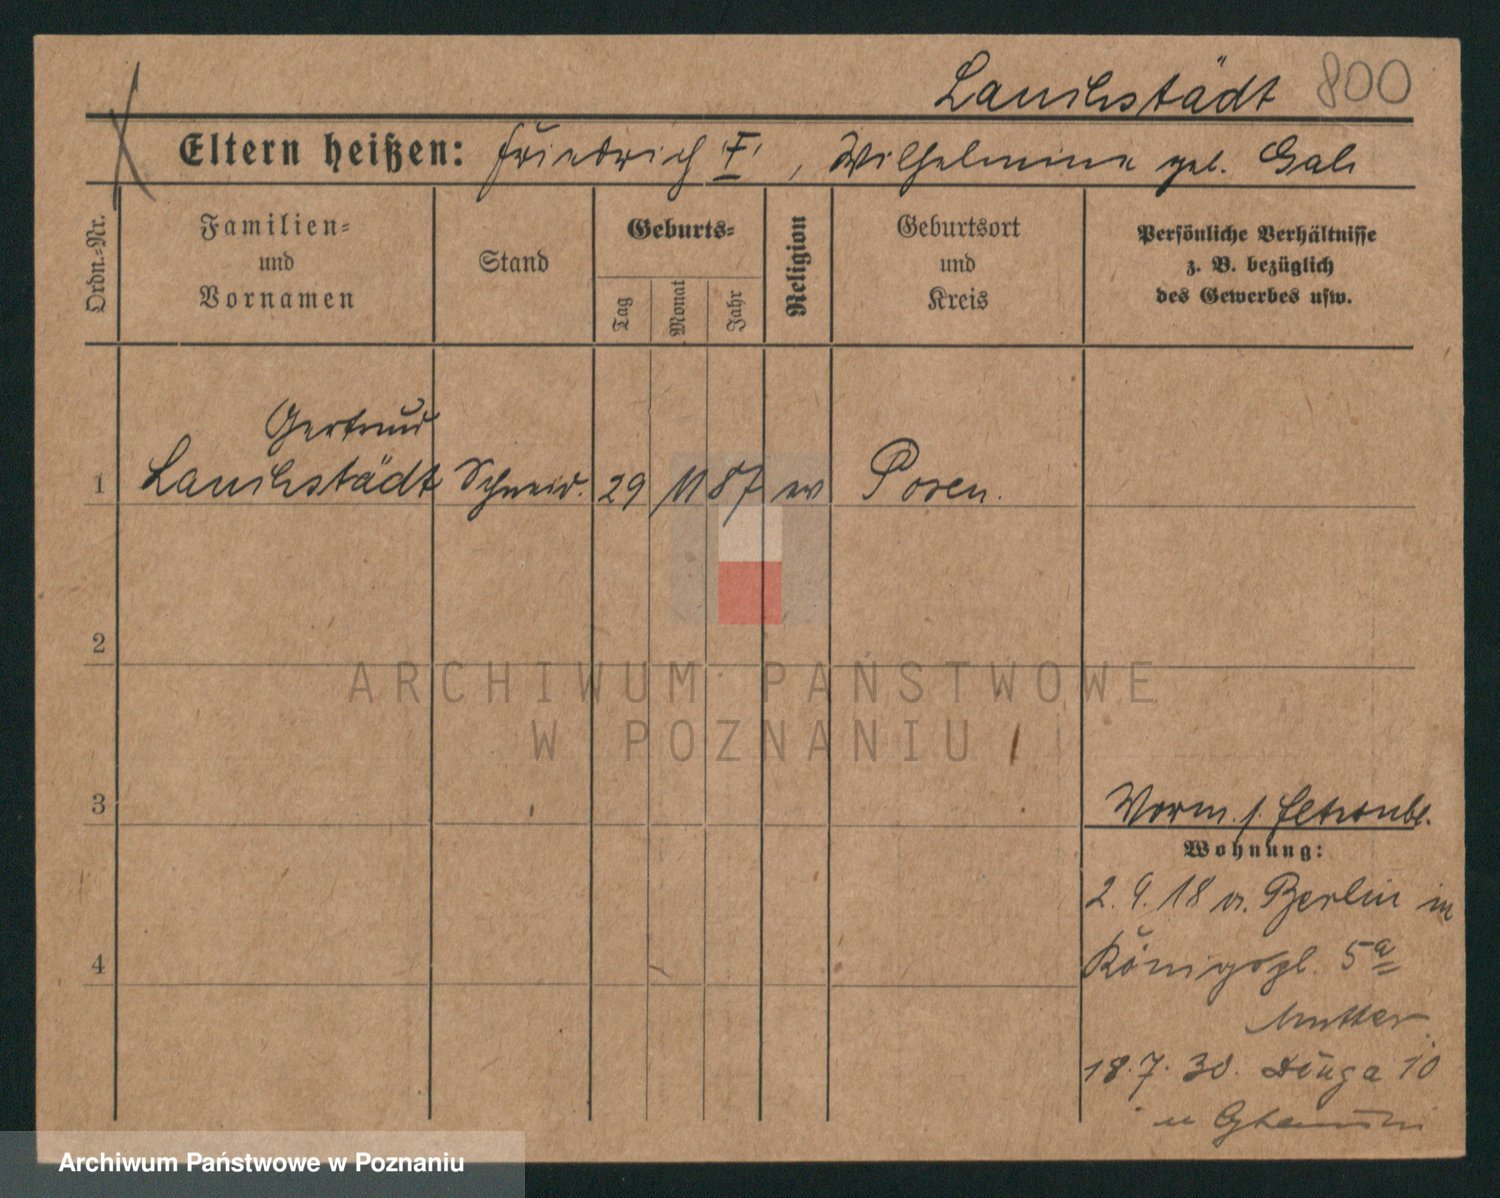 Lauchstädt 800
Eltern heißen: Friedrich F, Wilhelmine geb.
Ordn.-Nr.
Familien-
und
Vornamen
Stand
Geburts-
Tag
Monat
Jahr
Religion
Geburtsort
und
Kreis
Persönliche Verhältnisse
z. B. bezüglich
des Gewerbes usw.
Gertrud
1 Lauchstädt Schneid. 29 11 87 ev Posen.
2
ARCHIWUM PAŃSTWOWE
W POZNANIU
3
Wohnung:
2. 9. 18 v. Berlin in
4
Königspl. 5a
Mutter
18.7.30. Długa 10
Archiwum Państwowe w Poznaniu